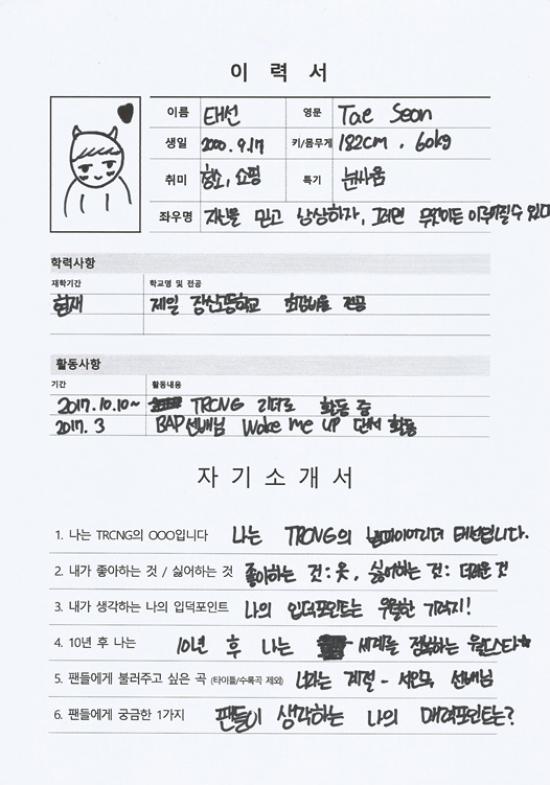 이 력 서
이름 태선 영문 Tae Seon
생일 2000.9.17 키/몸무게 182cm . 60kg
취미 청소, 쇼핑 특기 눈싸움
좌우명 자신을 믿고 상상하자, 그러면 무엇이든 이루어질 수 있다
학력사항
재학기간 학교명 및 전공
현재 제일 전공
활동사항
기간 활동내용
2017.10.10~ TRCNG 리더로 활동 중
2017.3 BAP선배님 Wake me up 댄서 활동
자 기 소 개 서
1. 나는 TRCNG의 OOO입니다 나는 TRCNG의 뱀파이어리더 태선입니다.
2. 내가 좋아하는 것 / 싫어하는 것 좋아하는 것:옷, 싫어하는 것: 더러운 것
3. 내가 생각하는 나의 입덕포인트 나의 입덕포인트는 우월한 기럭지!
4. 10년 후 나는 10년 후 나는 세계를 정복하는 월드스타★
5. 팬들에게 불러주고 싶은 곡 (타이틀/수록곡 제외) 너라는 계절 - 서인국 선배님
6. 팬들에게 궁금한 1가지 팬들이 생각하는 나의 매력포인트는?